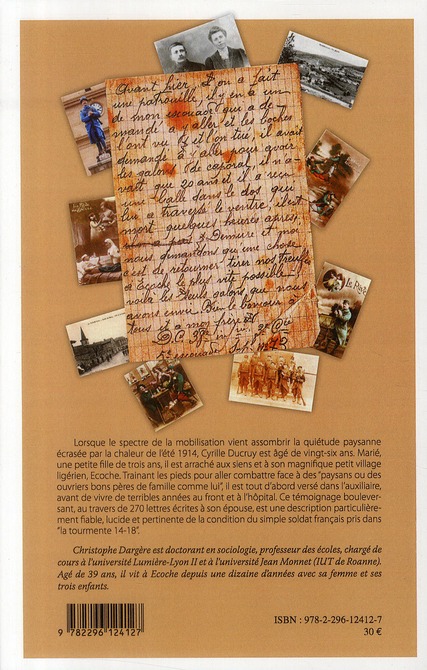 Avant hier, l'on a fait
une patrouille, il y en a un
de mon escouade qui a de-
mandé a y aller et les boches
l'ont vu et l'on tué, il avait
demandé a y aller pour avoir
les galons de caporal, il n'a-
vait que 20 ans et il a reçu
une balle dans le dos qui
lui a traversé le ventre, il est
mort quelques heures après,
a part  Demure et moi
nous demandons qu'une chose
c'est de retourner tirer nos treuffes
a Ecoche le plus vite possible
voilà les seuls galons que nous
avons envie Bien le bonjour a
tous et a mon frère
La Fille
Le Rêve
Lorsque le spectre de la mobilisation vient assombrir la quiétude paysanne
écrasée par la chaleur de l'été 1914, Cyrille Ducruy est âgé de vingt-six ans. Marié,
une petite fille de trois ans, il est arraché aux siens et à son magnifique petit village
ligérien, Ecoche. Trainant les pieds pour aller combattre face à des "paysans ou des
ouvriers bons pères de famille comme lui", il est tout d'abord versé dans l'auxiliaire,
avant de vivre de terribles années au front et à l'hôpital. Ce témoignage boulever-
sant, au travers de 270 lettres écrites à son épouse, est une description particulière-
ment fiable, lucide et pertinente de la condition du simple soldat français pris dans
"la tourmente 14-18".
Christophe Dargère est doctorant en sociologie, professeur des écoles, chargé de
cours à l'université Lumière-Lyon II et à l'université Jean Monnet (IUT de Roanne).
Agé de 39 ans, il vit à Ecoche depuis une dizaine d'années avec sa femme et ses
trois enfants.
9 782296 124127
ISBN : 978-2-296-12412-7
30 €